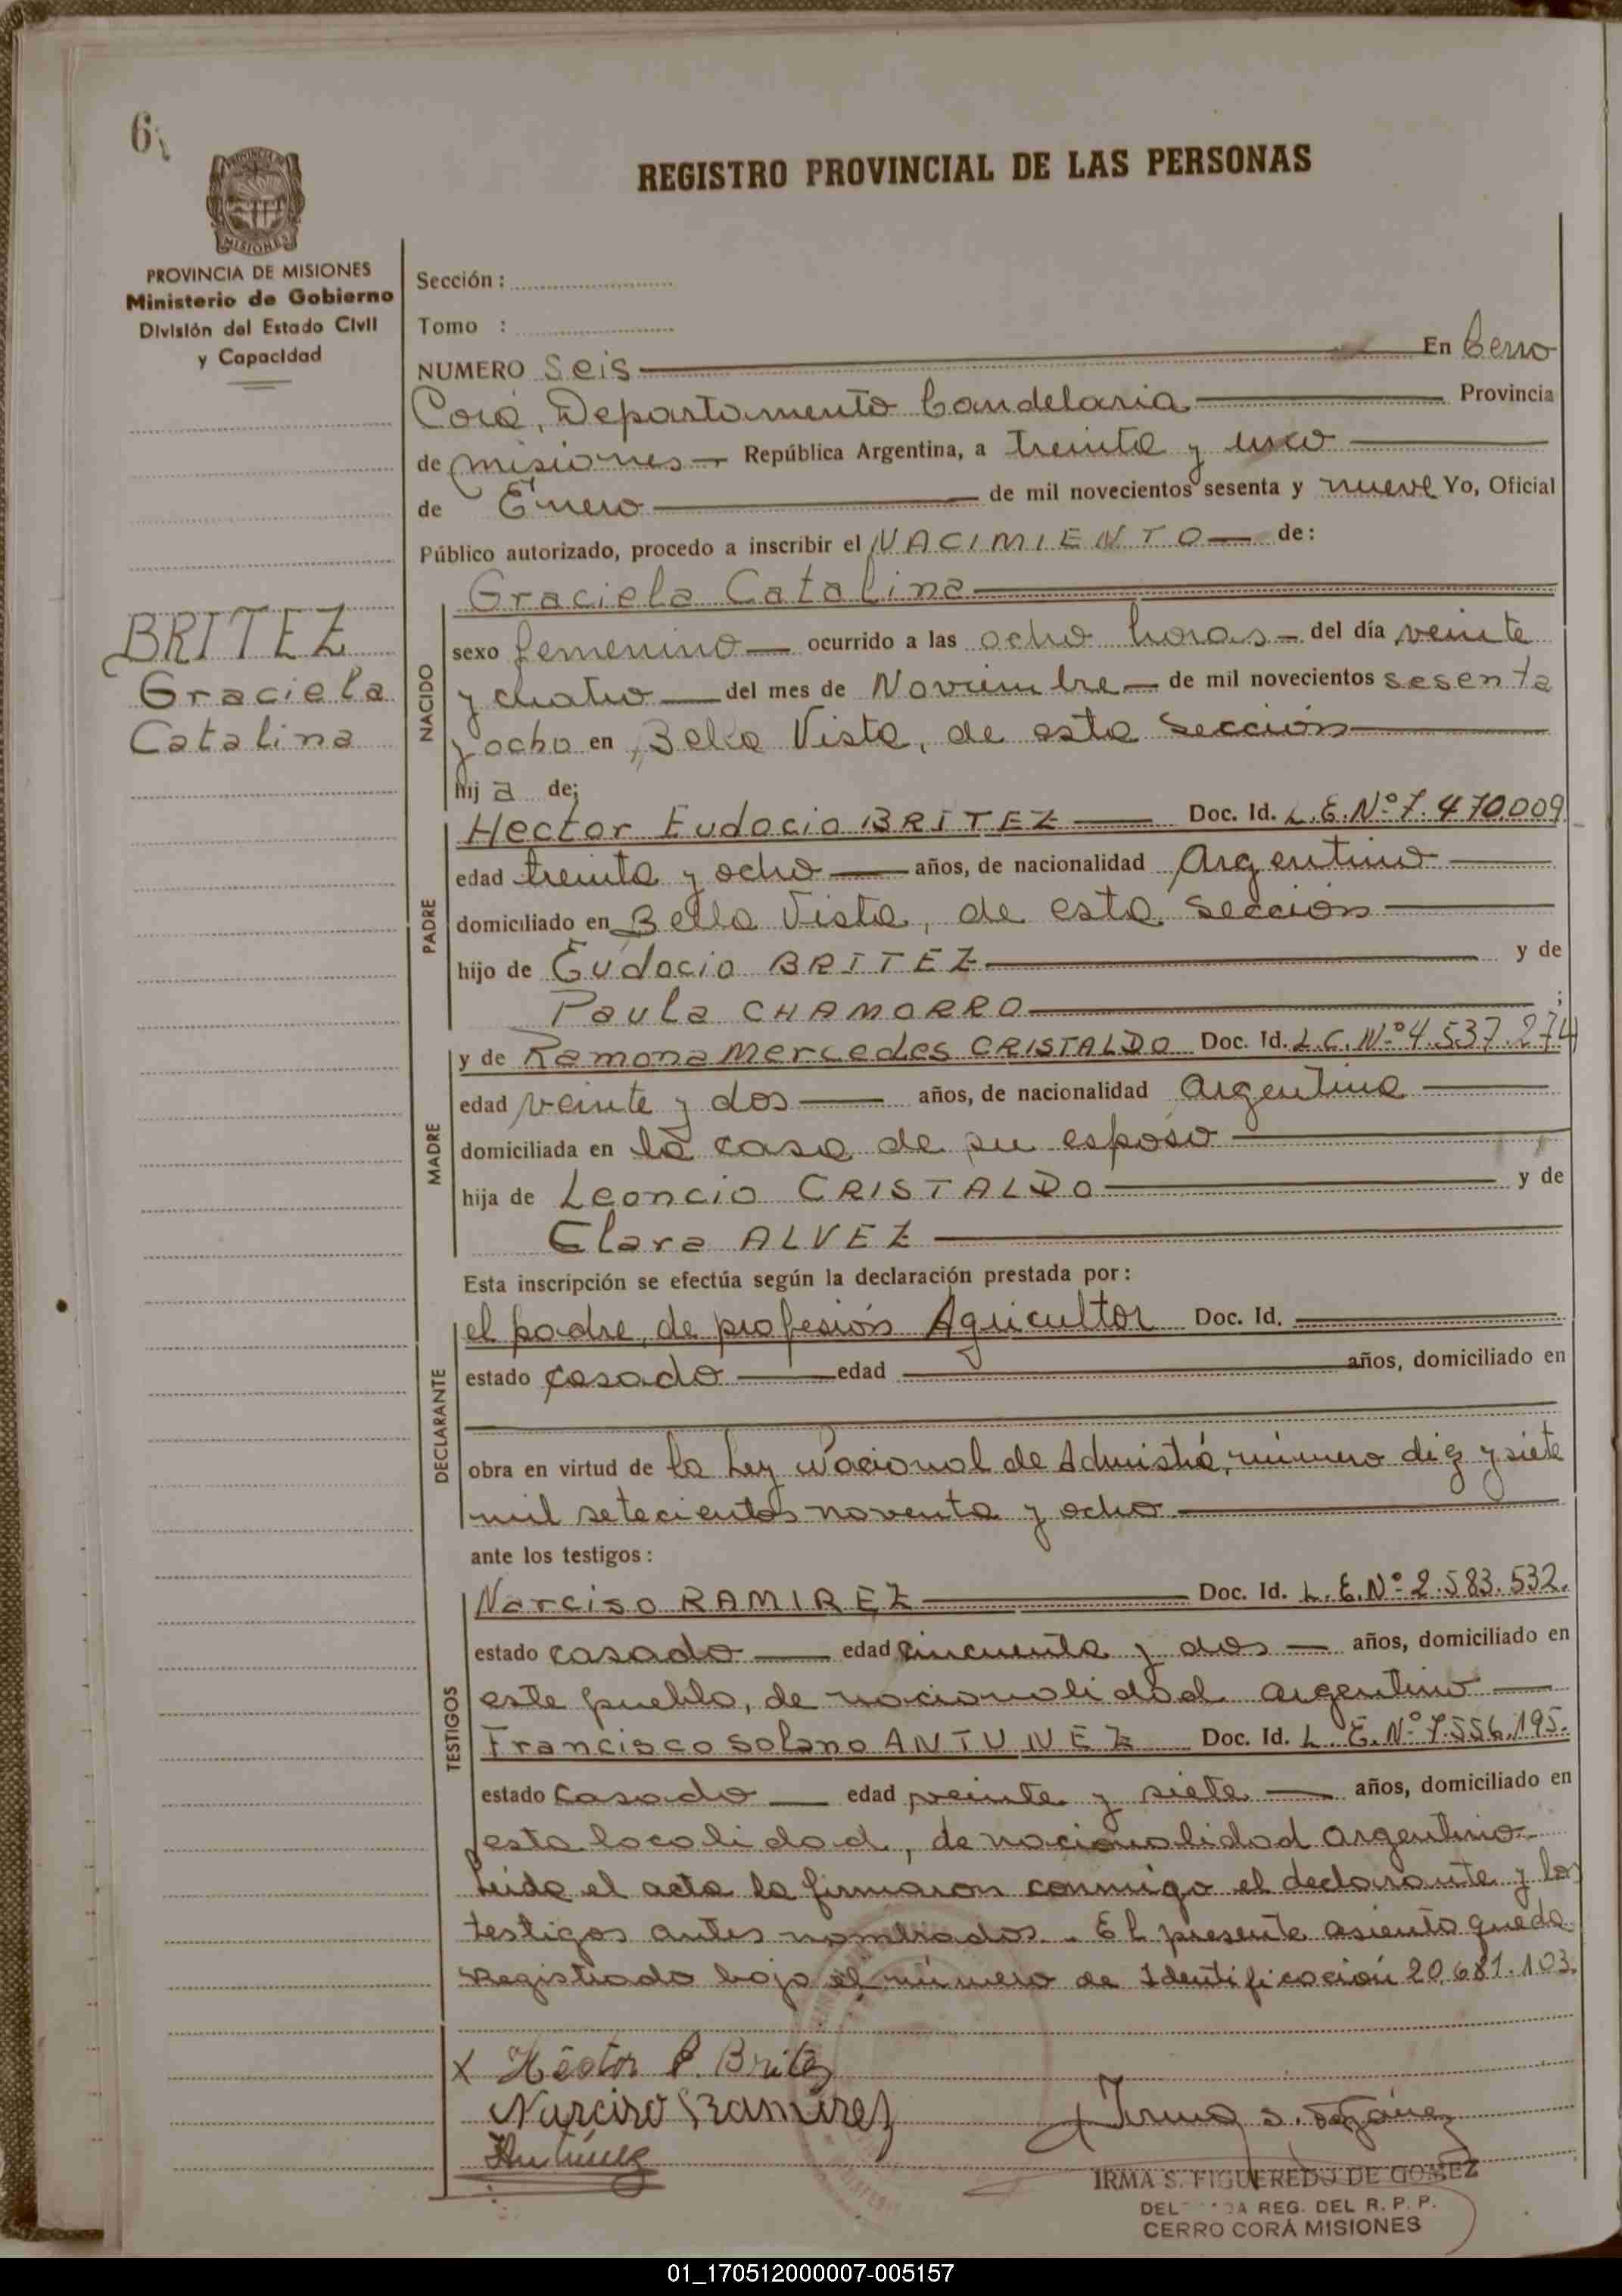 6
REGISTRO PROVINCIAL DE LAS PERSONAS
PROVINCIA DE MISIONES
MISIONES
PROVINCIA DE MISIONES
Ministerio de Gobierno
División del Estado Civil
y Capacidad
BRITEZ
Graciela
Catalina
Sección :
Tomo :
NUMERO Seis En Cerro
Corá, Departamento Candelaria Provincia
de Misiones República Argentina, a treinta y uno
de Enero de mil novecientos sesenta y nueve Yo, Oficial
Público autorizado, procedo a inscribir el NACIMIENTO de:
Graciela Catalina
NACIDO
sexo femenino ocurrido a las ocho horas del día veinte
y cuatro del mes de Noviembre de mil novecientos sesenta
y ocho en Bella Vista, de esta Sección
hij a de;
PADRE
Hector Eudocio BRITEZ Doc. Id. L.E.Nº 7.470.009
edad treinta y ocho años, de nacionalidad Argentino
domiciliado en Bella Vista, de esta Sección
hijo de Eudocio BRITEZ y de
Paula CHAMORRO ;
MADRE
y de Ramona Mercedes CRISTALDO Doc. Id. L.C.Nº 4.537.274
edad veinte y dos años, de nacionalidad Argentina
domiciliada en la casa de su esposo
hija de Leoncio CRISTALDO y de
Clara ALVEZ
Esta inscripción se efectúa según la declaración prestada por :
DECLARANTE
el padre, de profesión Agricultor Doc. Id.
estado casado edad años, domiciliado en
obra en virtud de la Ley Nacional de número diez y siete
mil setecientos noventa y ocho
ante los testigos :
TESTIGOS
Narciso RAMIREZ Doc. Id. L.E.Nº 2.583.532.
estado casado edad cincuenta y dos años, domiciliado en
este pueblo, de nacionalidad argentino
Francisco Solano ANTUNEZ Doc. Id. L.E.Nº 7.556.195.
estado casado edad veinte y siete años, domiciliado en
esta localidad, de nacionalidad argentino
Leida el acta la firmaron conmigo el declarante y los
testigos antes nombrados. El presente asiento queda
Registrado bajo el número de Identificación 20.681.103.
x Héctor E. Britez
Narciso Ramirez
Antúnez
Irma S. F. de Gómez
IRMA S. FIGUEREDO DE GOMEZ
DEL DA REG. DEL R. P. P.
CERRO CORÁ MISIONES
01_170512000007-005157